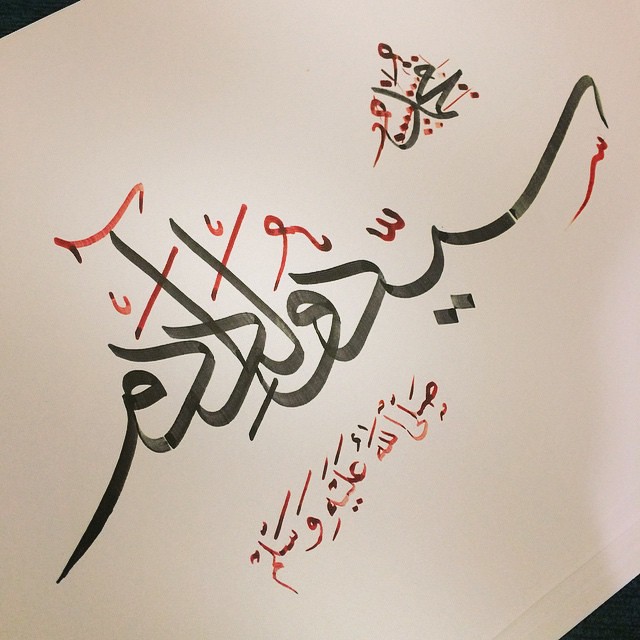 محمد
سيّد ولد آدم
صَلَّى اللهُ عَلَيْهِ وَسَلَّمْ